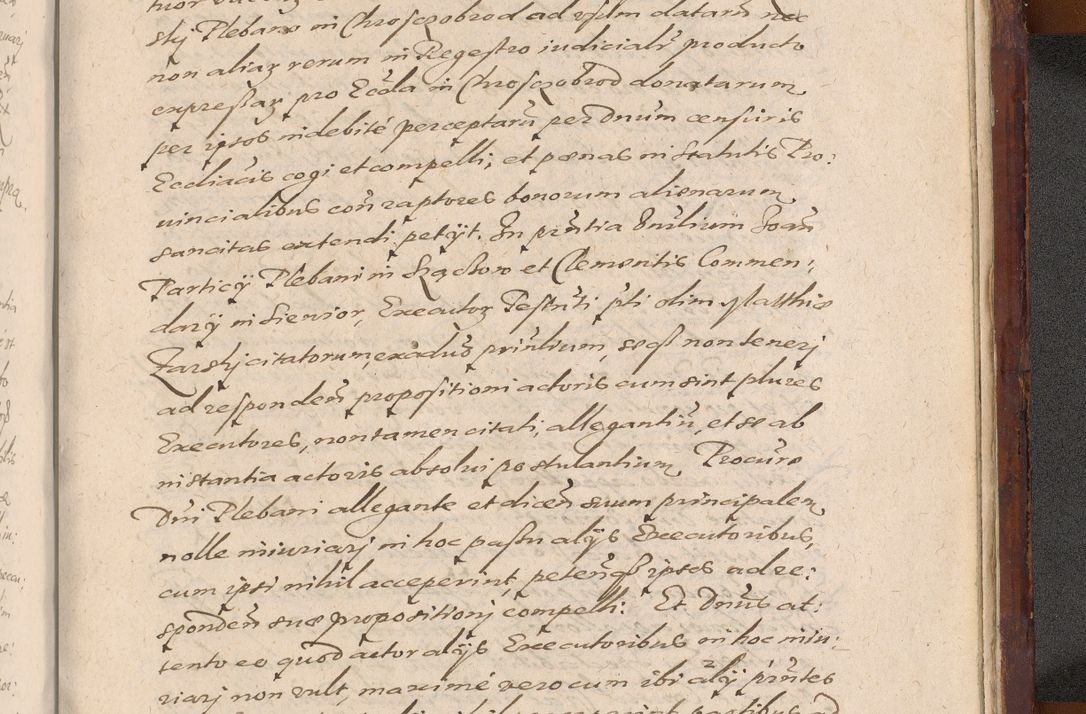 skj Plebano in Chrosczobrod ad usum datarũ nec
non aliaɀ rerum in Regestro iudicialr̃ producto
expressaɀ pro Eccl̃a in Chrosczobrod donatarum
per ipsos indebité perceptarũ per Dnũm censuris
Eccliãcis cogi et compelli, et pœnas in statutis Pro:
uincialibus coñ raptores bonorum alienarum
sancitas extendi petijt. In prñtia Dnõrum Joañ
Particÿ Plebani in et Clementis Commen:
darÿ in Siewior, Executoɀ Testm̃ti pti olim Matthiæ
Zarskj citatorum, ex aduõ prñtium, seqꝫ non tenerj
ad respondeñ propositioni actoris cum sint plures
Executores, non tamen citati, allegantiũ, et se ab
instantia actoris absolui postulantium, Procure
Dñi Plebani allegante et diceñ suum principalem
nolle iniuriarj in hoc passu alijs Executoribus,
cum ipsi nihil acceperint, peteñqꝫ ipsos ad re:
spondeñ suæ propositionj compelli: Et Dnũs at:
tento eo quod actor alijs Executoribus in hoc iniu:
riarj non vult, maximé vero cum ibi alÿ prñtes